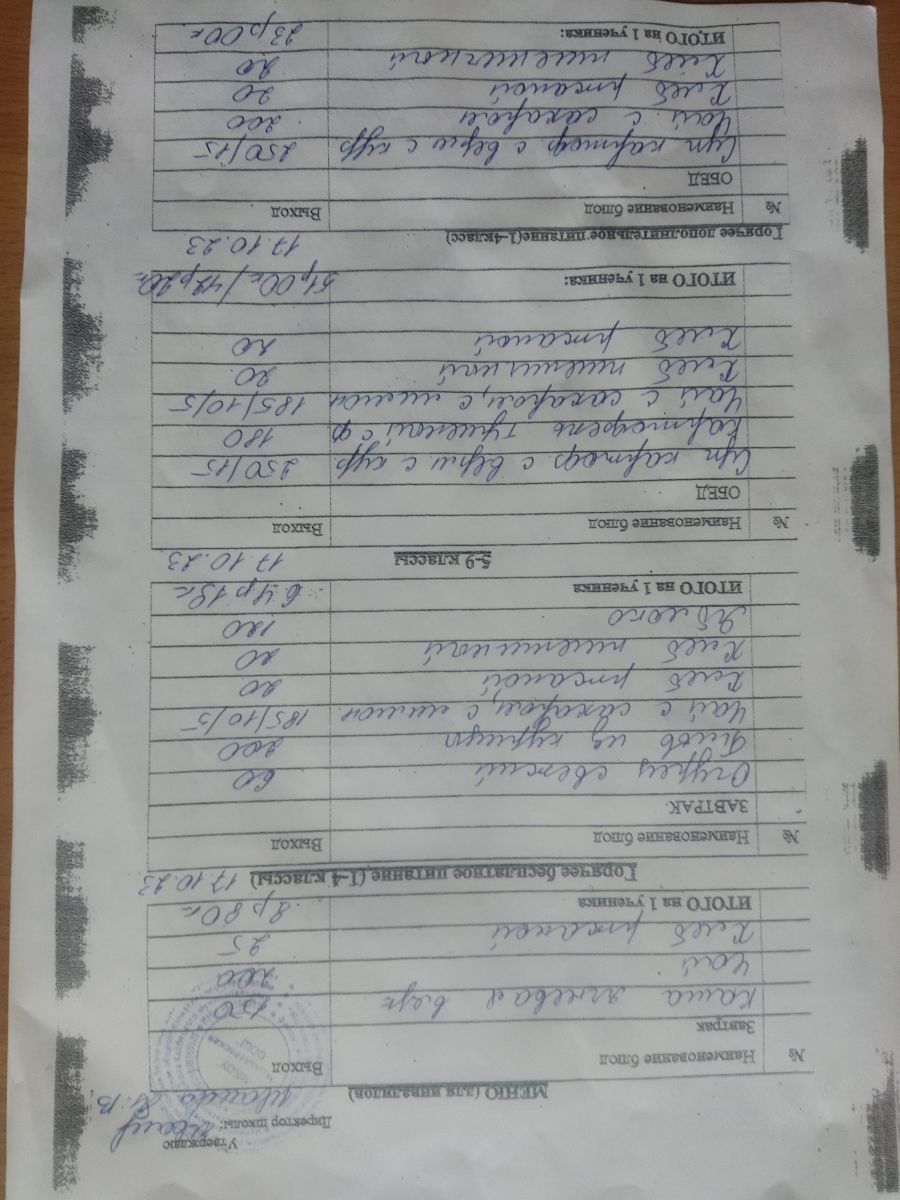 Утверждаю
Директор школы:
МЕНЮ (для инвалидов)
№ Наименование блюд Выход
Завтрак
Каша ячневая вязк 150
Чай 200
Хлеб ржаной 25
ИТОГО на 1 ученика 8р 80к
Горячее бесплатное питание (1-4 классы) 17.10.23
№ Наименование блюд Выход
ЗАВТРАК.
Огурец свежий 60
Плов из курицы 200
Чай с сахаром, с лимон 185/10/5
Хлеб ржаной 20
Хлеб пшеничной 20
Яблоко 120
ИТОГО на 1 ученика 64р 19к
5-9 классы 17.10.23
№ Наименование блюд Выход
ОБЕД
Суп картоф. с верм с кур 250/15
Картофель тушеной с ф 180
Чай с сахаром, с лимон 185/10/5
Хлеб пшеничной 20
Хлеб ржаной 20
ИТОГО на 1 ученика: 51р00к/
Горячее дополнительное питание(1-4класс) 17.10.23
№ Наименование блюд Выход
ОБЕД
Суп картоф. с верм с кур 250/15
Чай с сахаром 200
Хлеб ржаной 20
Хлеб пшеничной 20
ИТОГО на 1 ученика: 23р00к